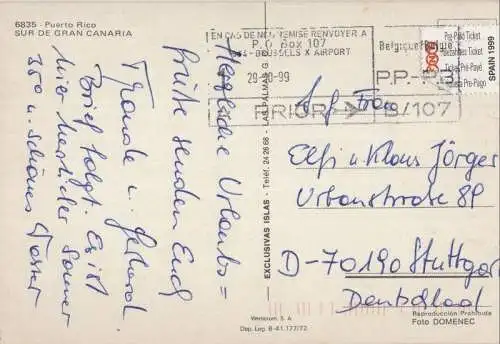 6835 - Puerto Rico
SUR DE GRAN CANARIA
Herzliche Urlaubs=
grüße senden Euch
Traude u. Gerhard.
Brief folgt. Es ist
hier herrlicher Sommer
350 u. schönes
EXCLUSIVAS ISLAS - Teléf. 24 26 68 - LAS PALMAS G.
Wertcrom, S. A.
Dep. Leg. B-41.177/72
EN CAS DE NON REMISE RENVOYER A
P.O. Box 107
BRUSSELS X AIRPORT
29-10-99
PRIOR
Belgique
P.P.-P.B.
B/107
Pre-Paid Ticket
Bezahltes Ticket
Ticket Pré-Payé
Pre-Pago
SPAIN 1999
Frau
Elfi u Klaus Jörger
Urbanstrasse 89
D-70190 Stuttgart
Deutschland
Reproducción Prohibida
Foto DOMENEC